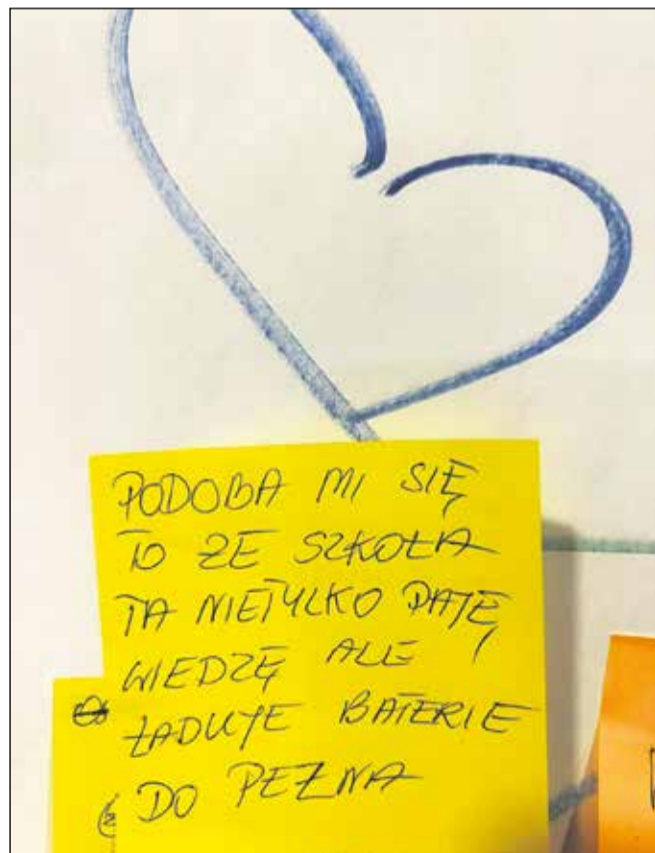 PODOBA MI SIĘ
TO ZE SZKOŁA
TA NIETYLKO DAJĘ
WIEDZĘ ALE
ŁADUJE BATERIE
DO PEŁNA